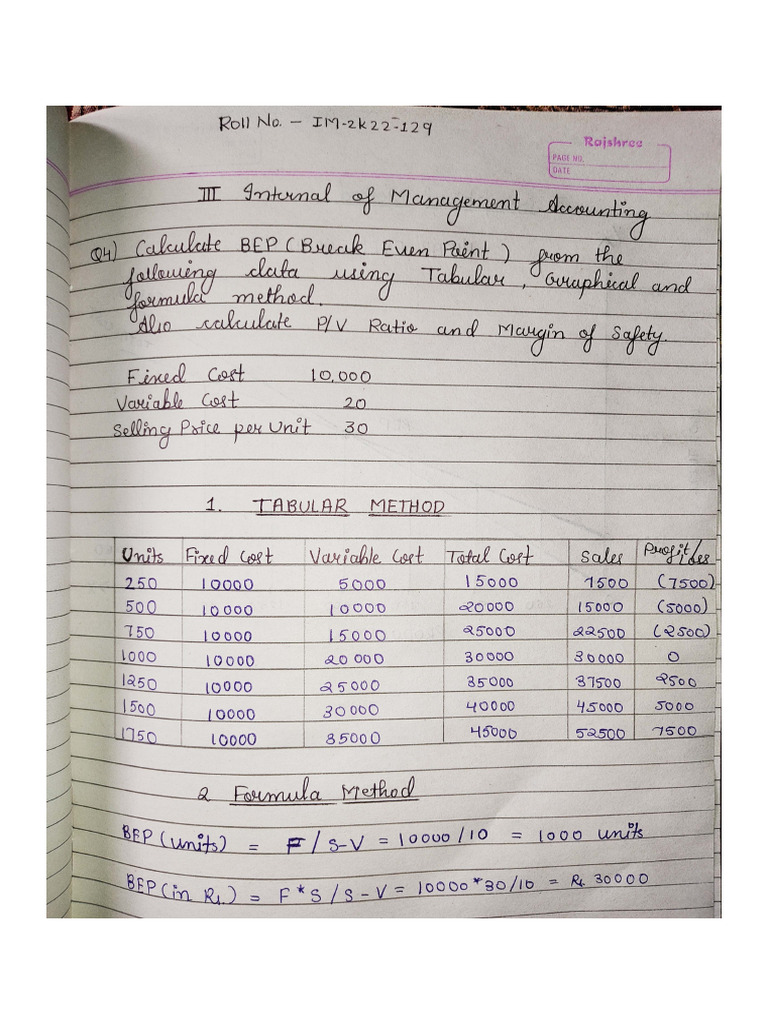 Roll No. - IM-2K22-129
Rajshree
PAGE NO.
DATE
III Internal of Management Accounting
Q4) Calculate BEP (Break Even Point) from the
following data using Tabular, Graphical and
formula method.
Also calculate P/V Ratio and Margin of Safety.
Fixed Cost 10,000
Variable Cost 20
Selling Price per Unit 30
1. TABULAR METHOD
Units Fixed Cost Variable Cost Total Cost Sales Profit/Loss
250 10000 5000 15000 7500 (7500)
500 10000 10000 20000 15000 (5000)
750 10000 15000 25000 22500 (2500)
1000 10000 20000 30000 30000 0
1250 10000 25000 35000 37500 2500
1500 10000 30000 40000 45000 5000
1750 10000 35000 45000 52500 7500
2 Formula Method
BEP (units) = F / S-V = 10000/10 = 1000 units
BEP (in Rs.) = F*S / S-V = 10000*30/10 = Rs. 30000